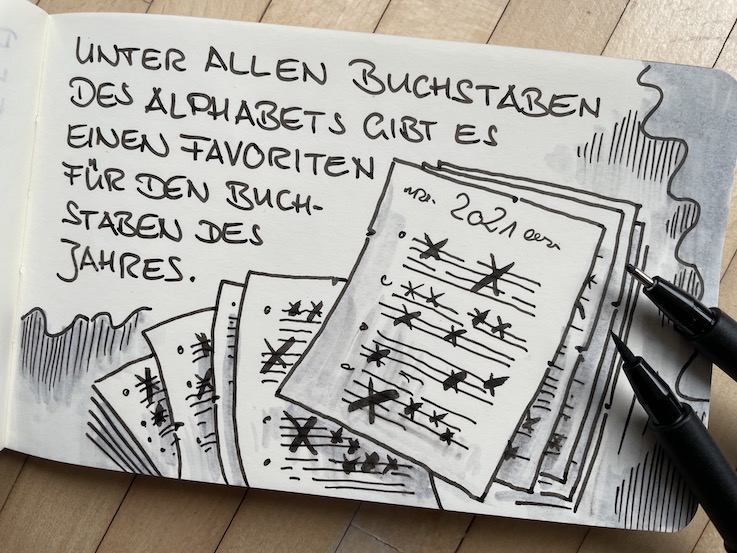 UNTER ALLEN BUCHSTABEN
DES ALPHABETS GIBT ES
EINEN FAVORITEN
FÜR DEN BUCH-
STABEN DES
JAHRES.
2021